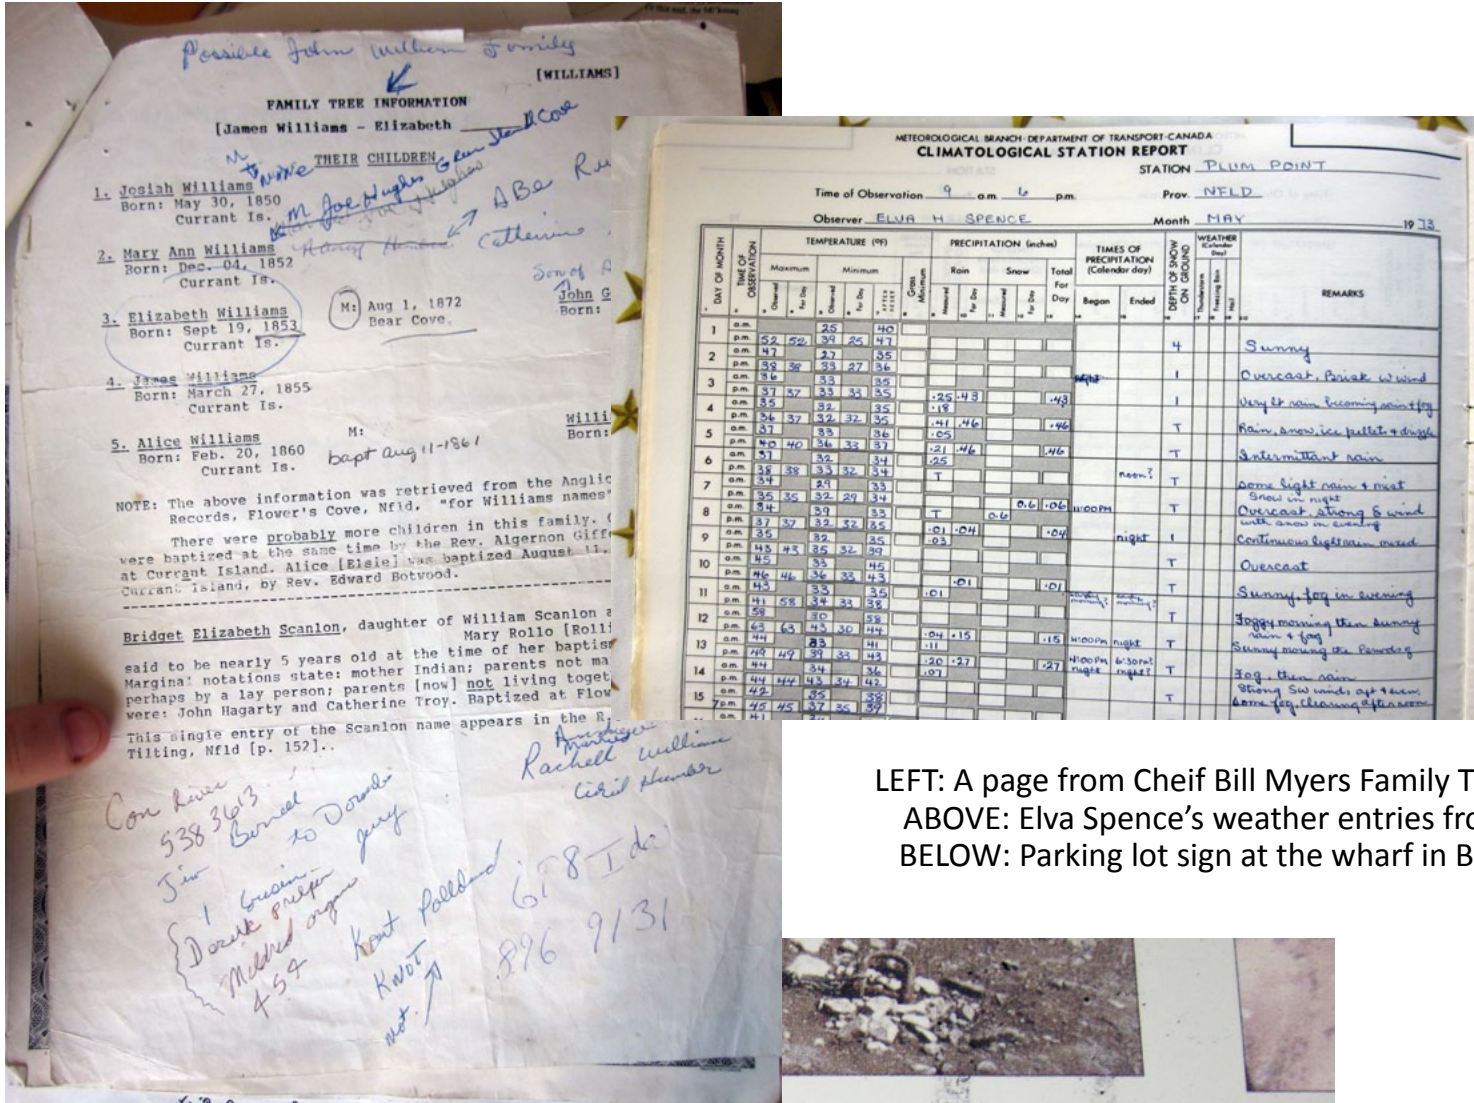 Possible John William Family
[WILLIAMS]
FAMILY TREE INFORMATION
[James Williams - Elizabeth
THEIR CHILDREN
1. Josiah Williams
Born: May 30, 1850
Currant Is.
M Joe Hughes Green Island Cove
2. Mary Ann Williams
Born: Dec. 04, 1852
Currant Is.
ABe
Catherine
Son of
John G
Born:
3. Elizabeth Williams
Born: Sept 19, 1853
Currant Is.
M: Aug 1, 1872
Bear Cove.
4. James Williams
Born: March 27, 1855
Currant Is.
5. Alice Williams
Born: Feb. 20, 1860
Currant Is.
M:
bapt Aug 11-1861
Willi
Born:
NOTE: The above information was retrieved from the Anglic
Records, Flower's Cove, Nfld, "for Williams names"
There were probably more children in this family.
were baptized at the same time by the Rev. Algernon Giff
at Currant Island. Alice [Elsie] was baptized August 11,
Currant Island, by Rev. Edward Botwood.
Bridget Elizabeth Scanlon, daughter of William Scanlon a
Mary Rollo [Rolli
said to be nearly 5 years old at the time of her baptis
Marginal notations state: mother Indian; parents not ma
perhaps by a lay person; parents [now] not living toget
were: John Hagarty and Catherine Troy. Baptized at Flow
This single entry of the Scanlon name appears in the R.
Tilting, Nfld [p. 152]..
Rachell William
Con River
538 3613
Jim
to
jerry
1
Mildred organ
454
Kent Pollard
KNOT
not
896 9131
METEOROLOGICAL BRANCH-DEPARTMENT OF TRANSPORT-CANADA
CLIMATOLOGICAL STATION REPORT
STATION PLUM POINT
Time of Observation 9 a.m. 6 p.m.
Prov. NFLD
Observer ELVA H SPENCE
Month MAY 1973
DAY OF MONTH
TIME OF OBSERVATION
TEMPERATURE (°F)
Maximum
Minimum
Grass Minimum
PRECIPITATION (inches)
Rain
Snow
Total For Day
TIMES OF PRECIPITATION (Calendar day)
Began
Ended
DEPTH OF SNOW ON GROUND
WEATHER (Calendar Day)
Thunderstorm
Freezing Rain
Hail
REMARKS
1 a.m. 25 40
p.m. 52 52 39 25 47 4 Sunny
2 a.m. 47 27 35
p.m. 38 38 33 27 36 1 Overcast, Brisk w wind
3 a.m. 36 33 35
p.m. 37 37 33 33 35 .25 .43 .43 1 Very lt rain becoming rain + fog
4 a.m. 35 32 35 .18
p.m. 36 37 32 32 35 .41 .46 .46 T Rain, snow, ice pellets + drizzle
5 a.m. 37 33 36 .05
p.m. 40 40 36 33 37 .21 .46 .46 T Intermittant rain
6 a.m. 37 32 34 .25
p.m. 38 38 33 32 34 T noon? T some light rain + mist
7 a.m. 34 29 33 Snow in night
p.m. 35 35 32 29 34 0.6 .06 11:00PM T Overcast, strong S wind
8 a.m. 34 39 33 T 0.6 with snow in evening
p.m. 37 37 32 32 35 .01 .04 .04 night 1 Continuous light rain mixed
9 a.m. 35 32 35 .03
p.m. 43 43 35 32 39 T Overcast
10 a.m. 45 33 45
p.m. 46 46 36 33 43 .01 .01 T Sunny, fog in evening
11 a.m. 43 33 35 .01
p.m. 41 58 34 33 38 T Foggy morning then sunny
12 a.m. 58 30 58 rain + fog
p.m. 63 63 43 30 44 .04 .15 .15 4:00PM night T Sunny morning the Periods of
13 a.m. 44 33 41 .11
p.m. 49 49 39 33 43 .20 .27 .27 4:00PM 6:30PM? T Fog, then rain
14 a.m. 44 34 36 .07 night night? Strong SW winds aft + even.
p.m. 44 44 43 34 42 T some fog. Clearing afternoon
15 a.m. 42 35 38
7p.m. 45 45 37 35 39
a.m. 41
LEFT: A page from Cheif Bill Myers Family T
ABOVE: Elva Spence’s weather entries fro
BELOW: Parking lot sign at the wharf in B